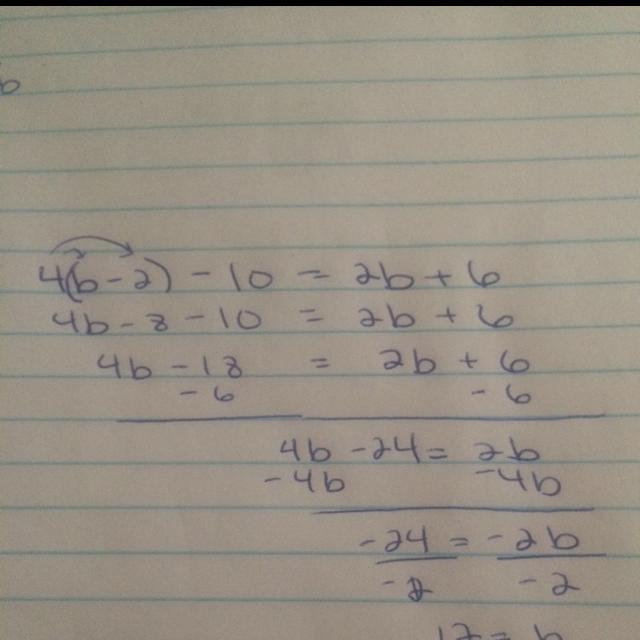 b
4(b-2) - 10 = 2b + 6
4b - 8 - 10 = 2b + 6
4b - 18 = 2b + 6
- 6 - 6
4b - 24 = 2b
- 4b - 4b
-24 = -2b
-2 -2
12 = b